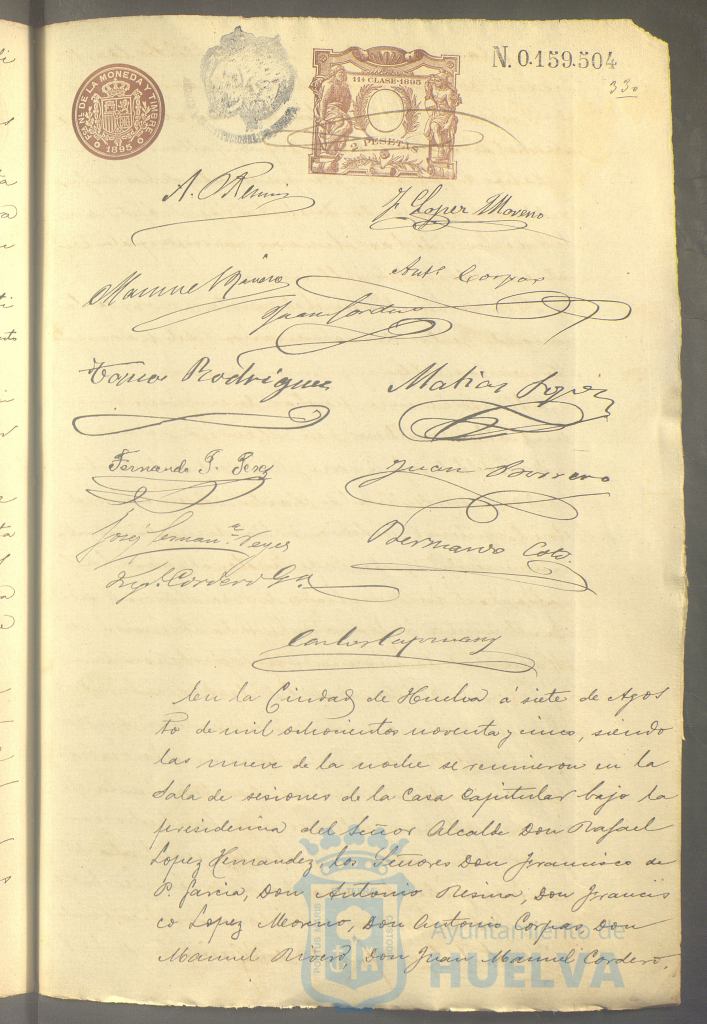 N. 0.159.504
33
FCA NAL DE LA MONEDA Y TIMBRE
1895
11ª CLASE-1895
2 PESETAS
A. Resina
F. Lopez Moreno
Manuel Rivero
Antº Corpas
Juan Cordero
Rodriguez
Matias Lopez
Fernando P. Perez
Juan Borrero
José
Bernardo Coto.
Cordero Gª
Carlos Capmany
En la Ciudad de Huelva á siete de Agos
to de mil ochocientos noventa y cinco, siendo
las nueve de la noche se reunieron en la
Sala de sesiones de la Casa Capitular bajo la
presidencia del Señor Alcalde Don Rafael
Lopez Hernandez, los Señores Don Francisco de
P. Garcia, Don Antonio Resina, Don Francis
co Lopez Moreno, Don Antonio Corpas, Don
Manuel Rivero, Don Juan Manuel Cordero,
Ayuntamiento de
HUELVA